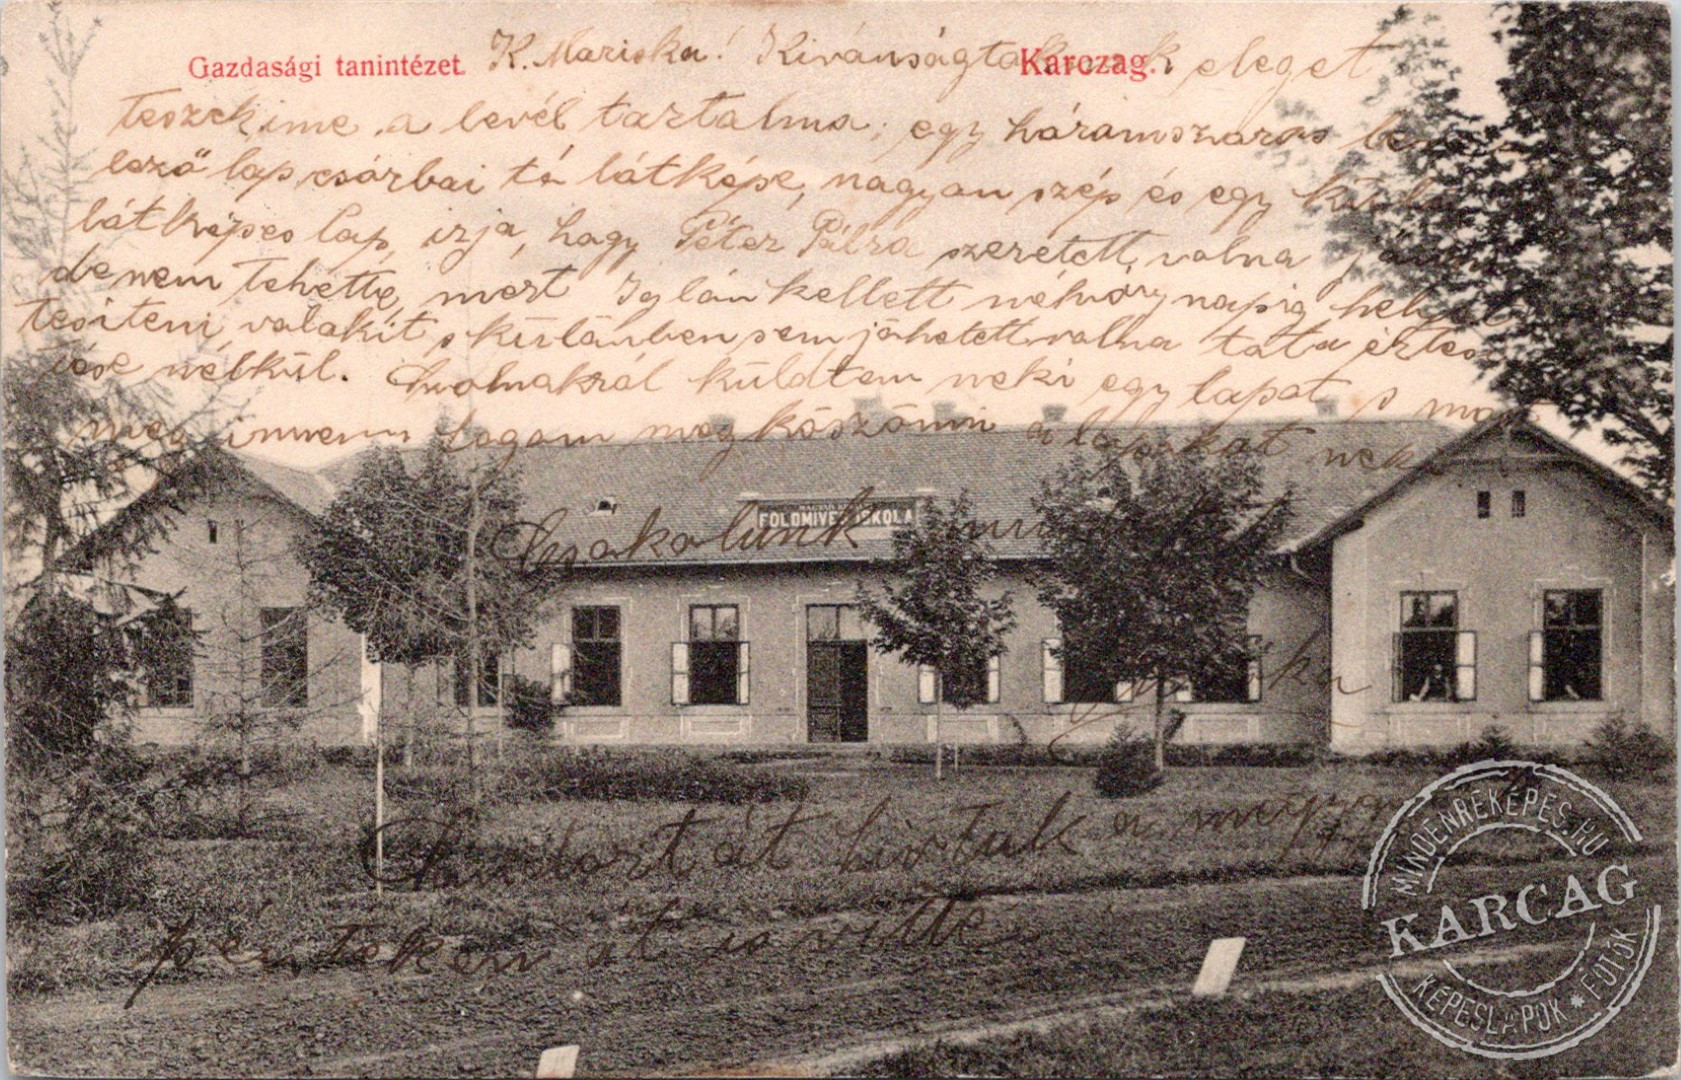 Gazdasági tanintézet. Karczag.
K. Mariska! Kivánságtoknak eleget
teszek ime a levél tartalma; egy háromszoros
lap csorbai tó látképe, nagyon szép és egy
látképes lap, irja, hogy Péter Pálra szeretett volna
de nem tehette, mert Iglón kellett néhány napig helyet
tesiteni valakit s különben sem jöhetett volna tata értes
ése nélkül. küldtem neki egy lapot s
meg fogom megköszönni a lapokat neki
MAGYAR
FÖLDMIVES ISKOLA
Csókolunk
Sándort át hivtuk a
pénteken át is vitte.
MINDENREKÉPES.HU
KARCAG
KÉPESLAPOK * FOTÓK